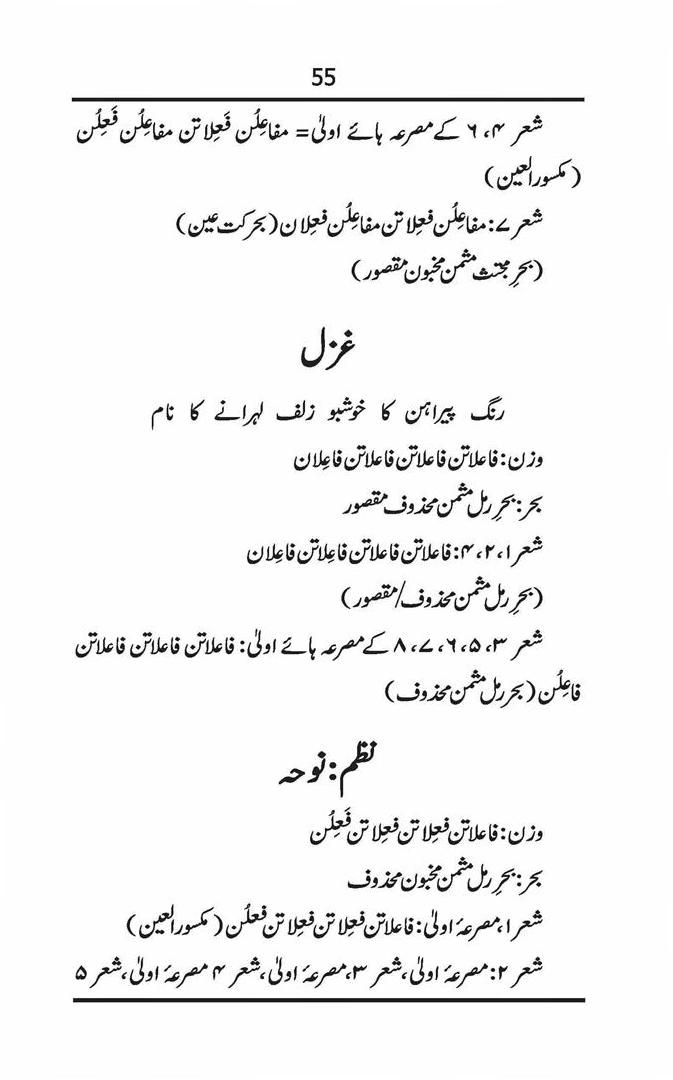 55
شعر ۴، ۶ کے مصرعہ ہائے اولیٰ= مفاعِلُن فَعِلاتن مفاعِلُن فَعِلُن
(مکسورالعین)
شعر ۷: مفاعِلُن فعِلاتن مفاعِلُن فعِلان (بحرکت عین)
(بحرِ مجتث مثمن مخبون مقصور)
غزل
رنگ پیراہن کا خوشبو زلف لہرانے کا نام
وزن: فاعلاتن فاعلاتن فاعلاتن فاعِلان
بحر: بحرِ رمل مثمن محذوف مقصور
شعر ۱، ۲، ۴: فاعلاتن فاعلاتن فاعِلاتن فاعِلان
(بحرِ رمل مثمن محذوف/مقصور)
شعر ۳، ۵، ۶، ۷، ۸ کے مصرعہ ہائے اولیٰ: فاعلاتن فاعلاتن فاعلاتن
فاعِلُن (بحر رمل مثمن محذوف)
نظم: نوحہ
وزن: فاعلاتن فعِلاتن فعِلاتن فَعِلُن
بحر: بحرِ رمل مثمن مخبون محذوف
شعر ۱، مصرعۂ اولیٰ: فاعلاتن فعِلاتن فعِلاتن فعلُن (مکسورالعین)
شعر ۲: مصرعۂ اولیٰ، شعر ۳، مصرعۂ اولیٰ، شعر ۴ مصرعۂ اولیٰ، شعر ۵